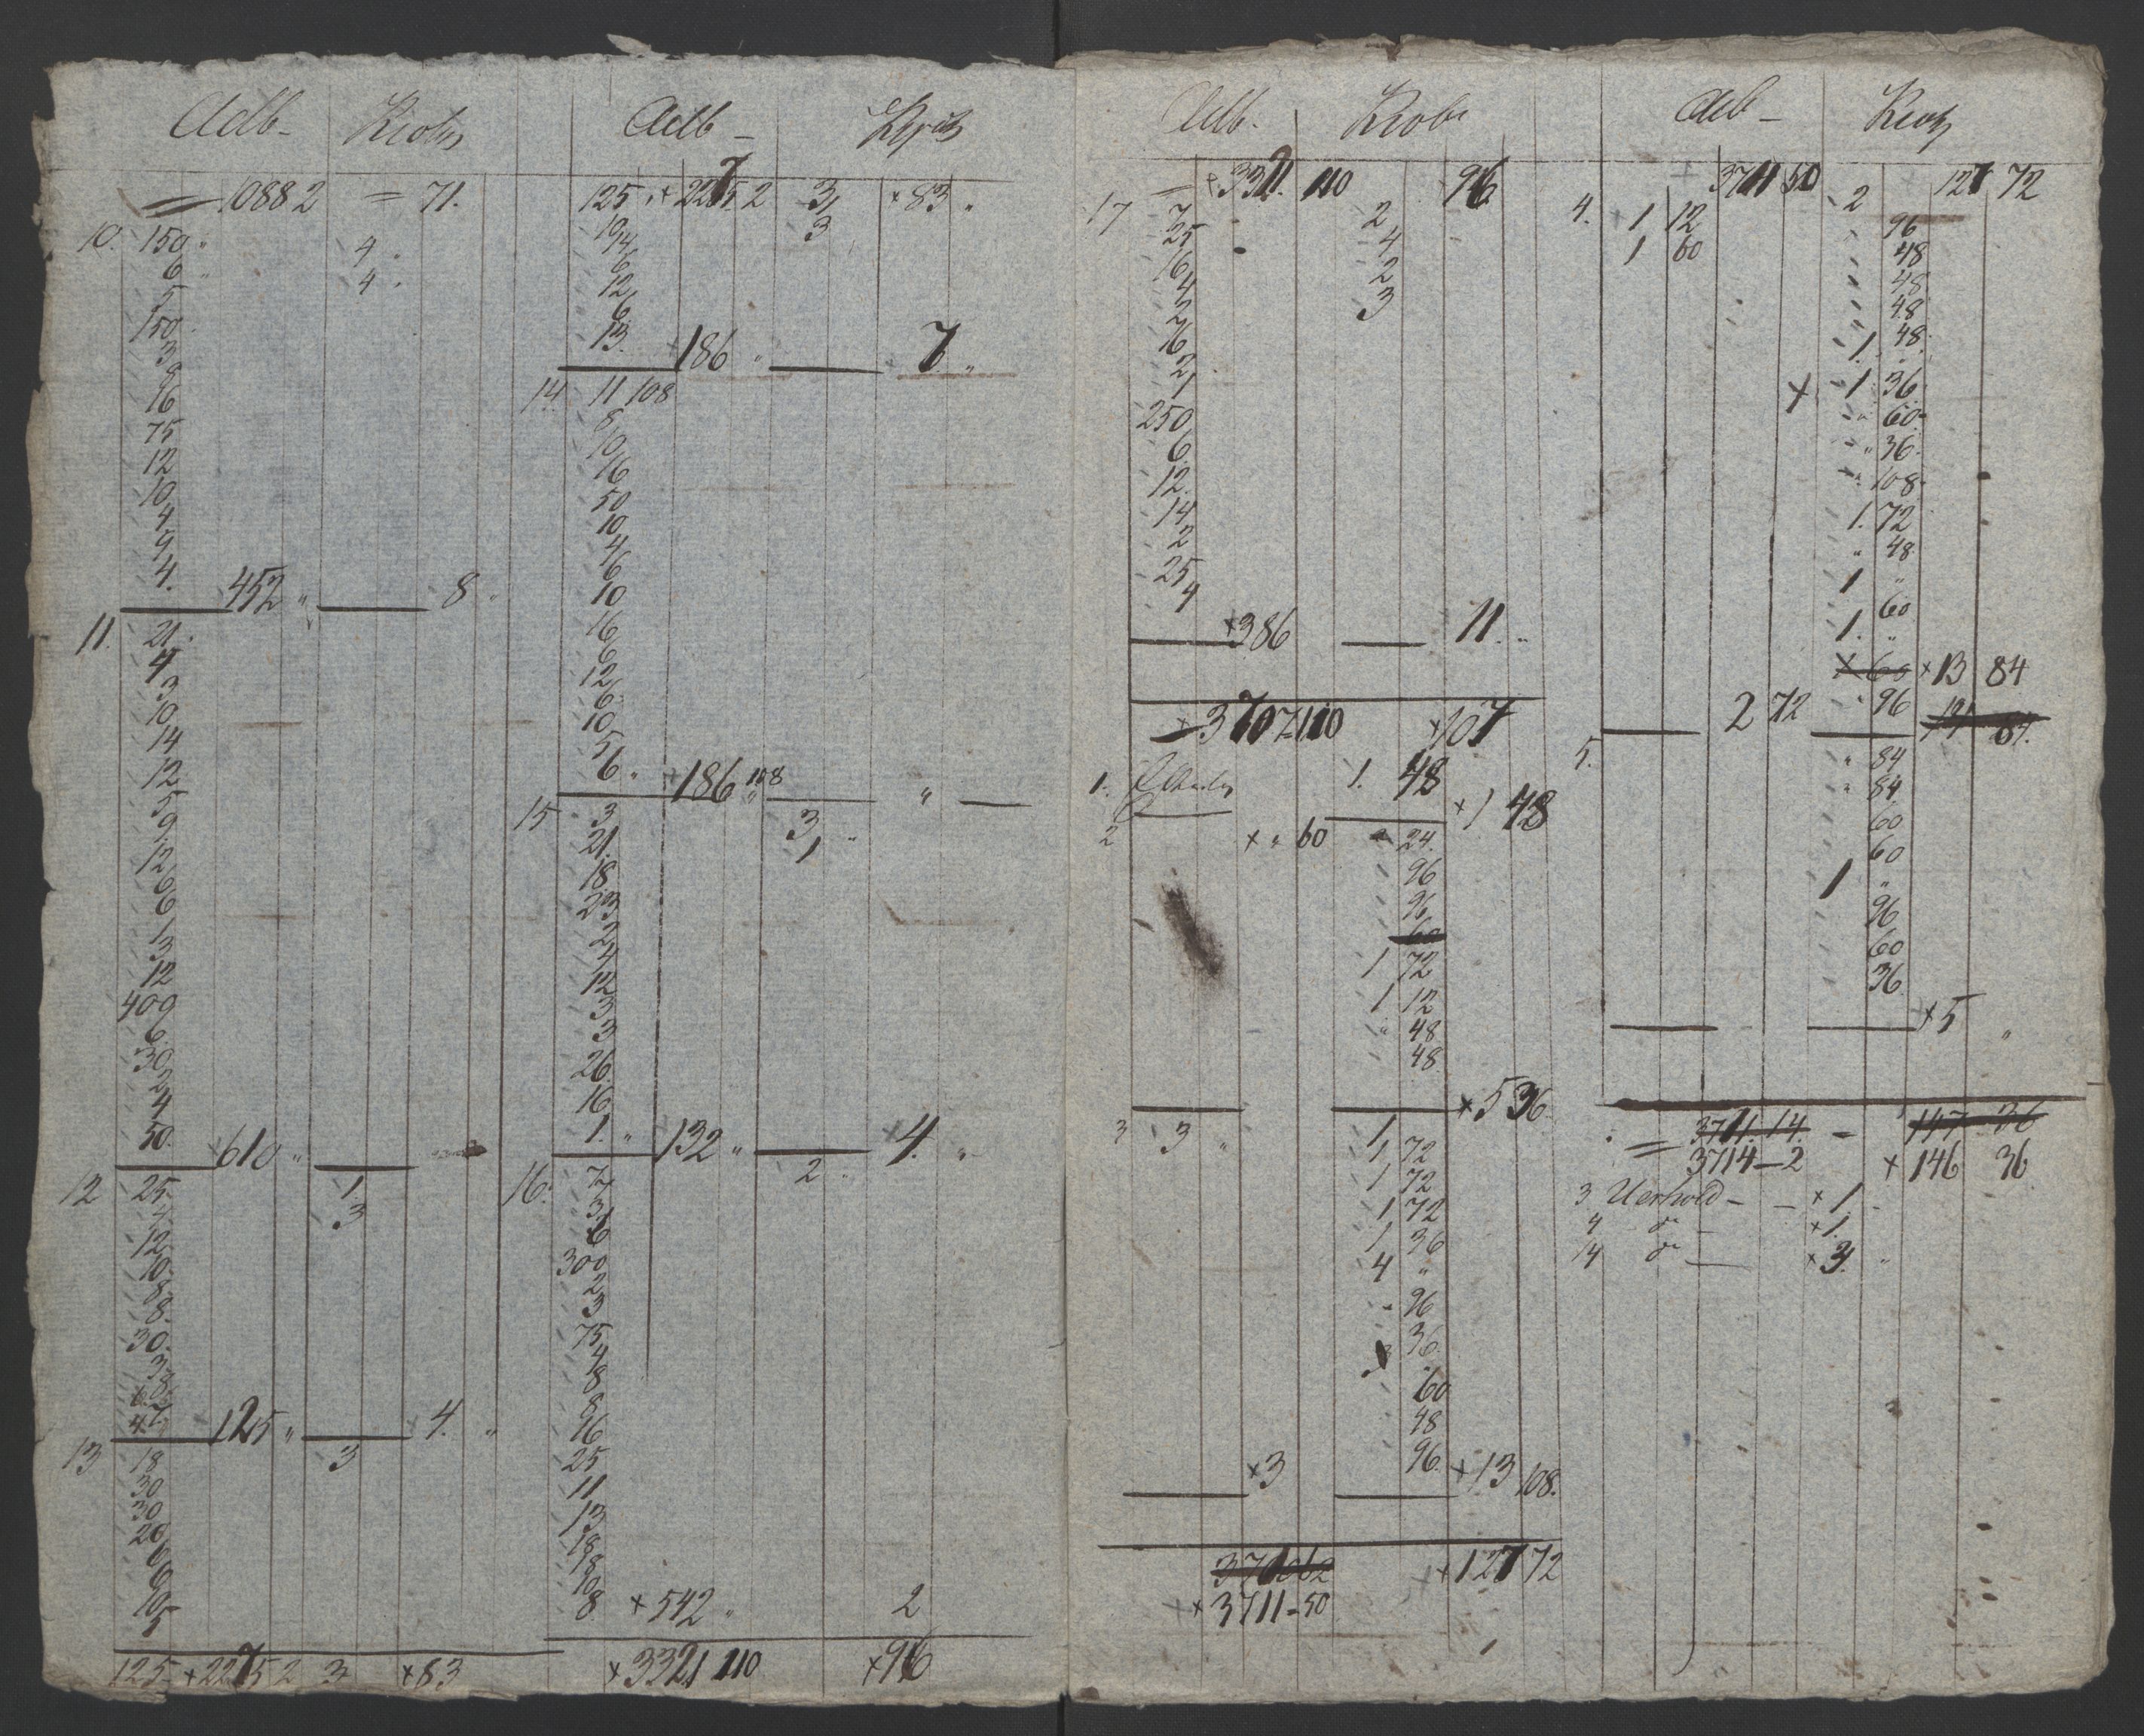 Adb – 
= 1088 2 = 71.
10. 150 „ 4 „
6 „ 4 „
5
150
3
9
16
75
12
10
4
4
4. 452 „ 8 „
11. 21.
4
3
10
14
12
5
9
12
6
6
1
3
12
400
6
30
2
4
50. 610 „
12 25 1
4 3
12
10
8
8.
30.
3
8
6
4 125 „ 4. „
13 18 3
30
30
20
6
6
10
5
125 × 2275 2 3 × 83
Adb –
125 „ × 2275. 2 3 × 83 „
10 3
14
6
12
6
13. 186 „ 7 „
14 11 108
8
10
16
50
10
4
6
10
16
6
12
6
10
5
6 „ 186 108 „
15 3 3 „
21. 1
18
23
2
4
12
3
3
26
16
1. „ 132 „ 4. „
16. 7 2 „
3
6
300
2
3
75
4
8
8
16
25
11
13
18
18
10
8 × 542 „ 2
× 3321 110 × 96
Adb.
= × 3321. 110 96
17 7 2
25 4
16 2
4 3
2
16
2
1
250
6
12.
14
2
25
4
× 386 11. „
× 3707 110 × 107
1. 1. 48
× 1 48
2 × „ 60 24.
96
96
60
1 72
1 12
„ 48
48
× 5 36
3 3 „ 1
1 72
1 72
1 72
1 36
4 „
96
36
60
48
96
× 3 × 13 108.
× 127 72
× 3711 – 50
Adb –
3711 50 127 72
2
4. 1 12 96
1 60 48
48
48
1. 48
× 1 36
„ 60
„ 36
„ 108
1. 72
„ 48
1 „
60
1. „
× 60 × 13 84
2 72 96
5. „ 84
„ 84
60
60
1 „
96
60
36
× 5 „
= 3711. 14. – 147 36
3714 – 2 × 146 36
3 Uerhold – – × 1. „
4 d° – × 1.
14 d° – × 3. „